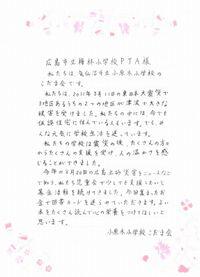 広島市立梅林小学校PTA様
私たちは、気仙沼市立小原木小学校の
こだま会です。
私たちは、2011年3月11日の東日本大震災で
3地区あるうちの2つの地区が津波で大きな
被害を受けました。私たちの中には、今でも
仮設住宅に住んでいる人もいます。でも、み
んな元気に学校生活を送っています。
私たちの学校は震災の後、たくさんの方々
からたくさんの支援を受け、人の温かさを感
じることができました。
今年の8月20日の広島土砂災害をニュースなど
で知り、私たち児童会で少しでも支援したいと
募金活動を続けてきました。今回集まったお
金で図書カードを送らせていただきます。よい
本をたくさん読んで心の栄養をつけてほしいと
思います。
小原木小学校こだま会